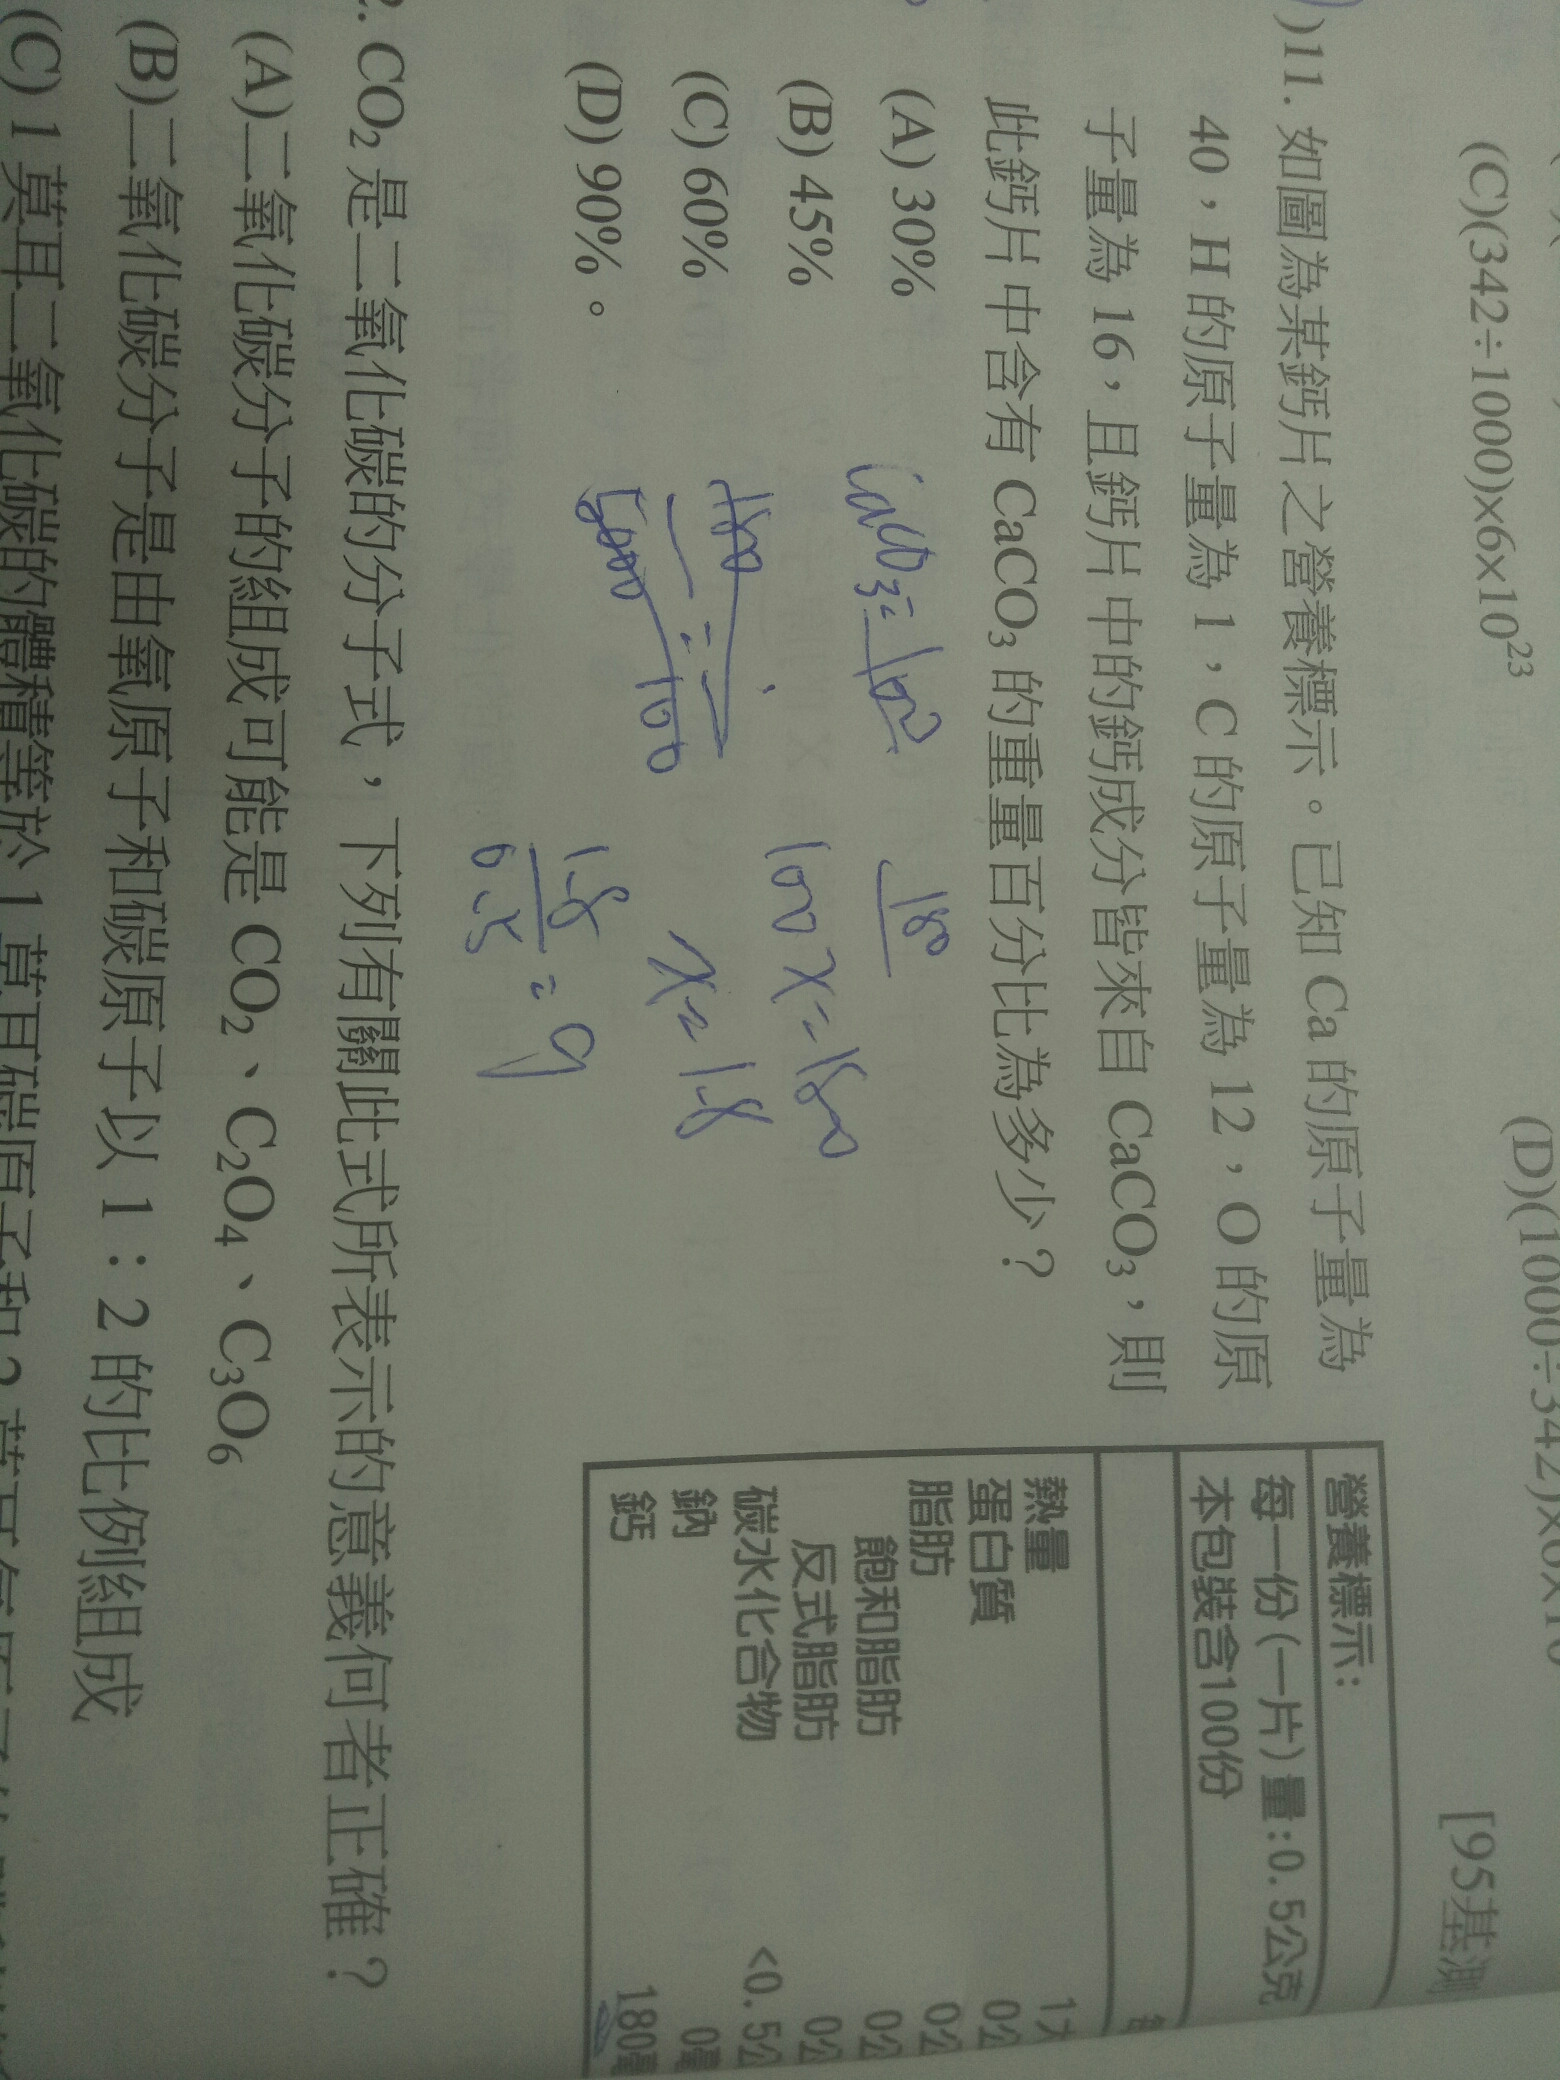 (C)(342÷1000)x6x10²³
(D)(1000÷342)x6x10
[95基測
)11. 如圖為某鈣片之營養標示。已知 Ca 的原子量為
40，H 的原子量為 1，C 的原子量為 12，O 的原
子量為 16，且鈣片中的鈣成分皆來自 CaCO₃，則
此鈣片中含有 CaCO₃ 的重量百分比為多少？
(A) 30%
(B) 45%
(C) 60%
(D) 90%。
CaCO₃=100
180
100x=180
x=1.8
營養標示：
每一份(一片)量:0.5公克
本包裝含100份
熱量 1大
蛋白質 0公
脂肪 0公
飽和脂肪 0公
反式脂肪 0公
碳水化合物 <0.5公
鈉 0毫
鈣 180毫
2. CO₂ 是二氧化碳的分子式，下列有關此式所表示的意義何者正確？
(A)二氧化碳分子的組成可能是 CO₂、C₂O₄、C₃O₆
(B)二氧化碳分子是由氧原子和碳原子以 1：2 的比例組成
(C) 1 莫耳二氧化碳的體積等於 1 莫耳碳原子和 2 莫耳氧原子